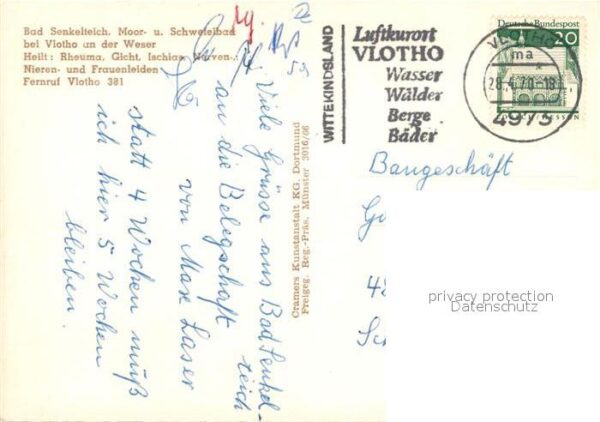 Bad Senkelteich. Moor- u. Schwefelbad
bei Vlotho an der Weser
Heilt: Rheuma, Gicht, Ischias, Nerven-,
Nieren- und Frauenleiden
Fernruf Vlotho 381
Viele Grüsse aus Bad Senkel-
teich
an die Belegschaft
von Max Laser
statt 4 Wochen muß
ich hier 5 Wochen
bleiben.
Cramers Kunstanstalt KG. Dortmund
Freigeg. Reg.-Präs. Münster 3016/66
WITTEKINDSLAND
Luftkurort
VLOTHO
Wasser
Wälder
Berge
Bäder
Deutsche Bundespost
20
VLOTHO
ma
4973
Baugeschäft
privacy protection
Datenschutz